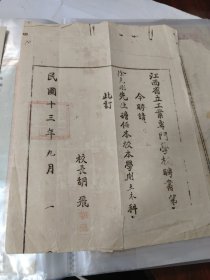 江西省立工業專門學校聘書第
今聘請
先生擔任本校本學期土木科
此訂
校長胡
民國十三年九月 一